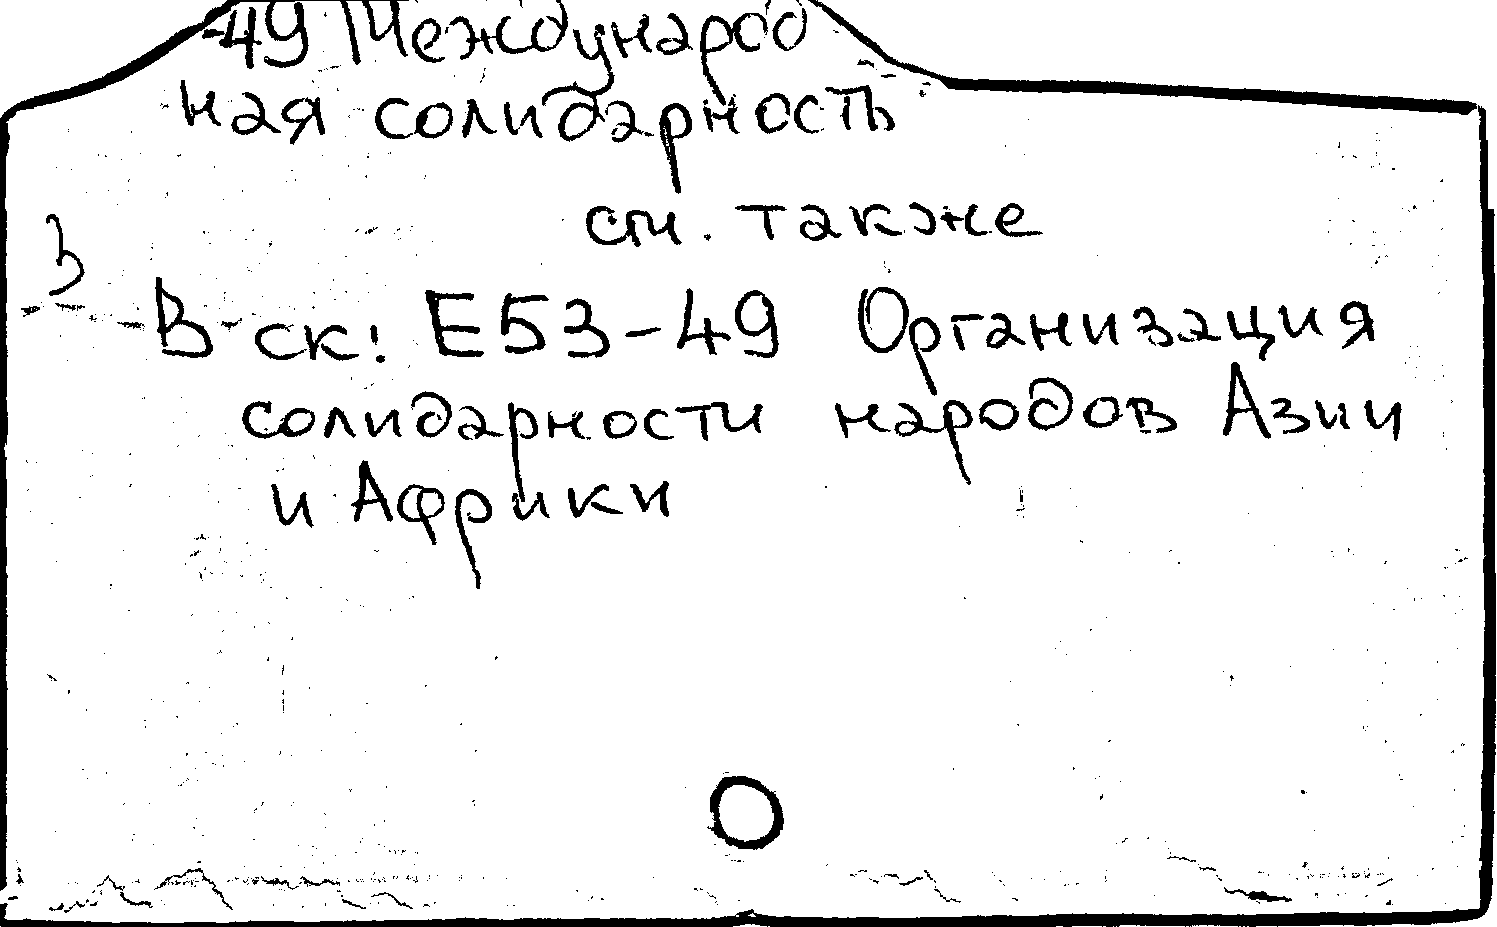 -49 Международ
ная солидарность
см. также
3
В ск: Е53-49 Организация
солидарности народов Азии
и Африки